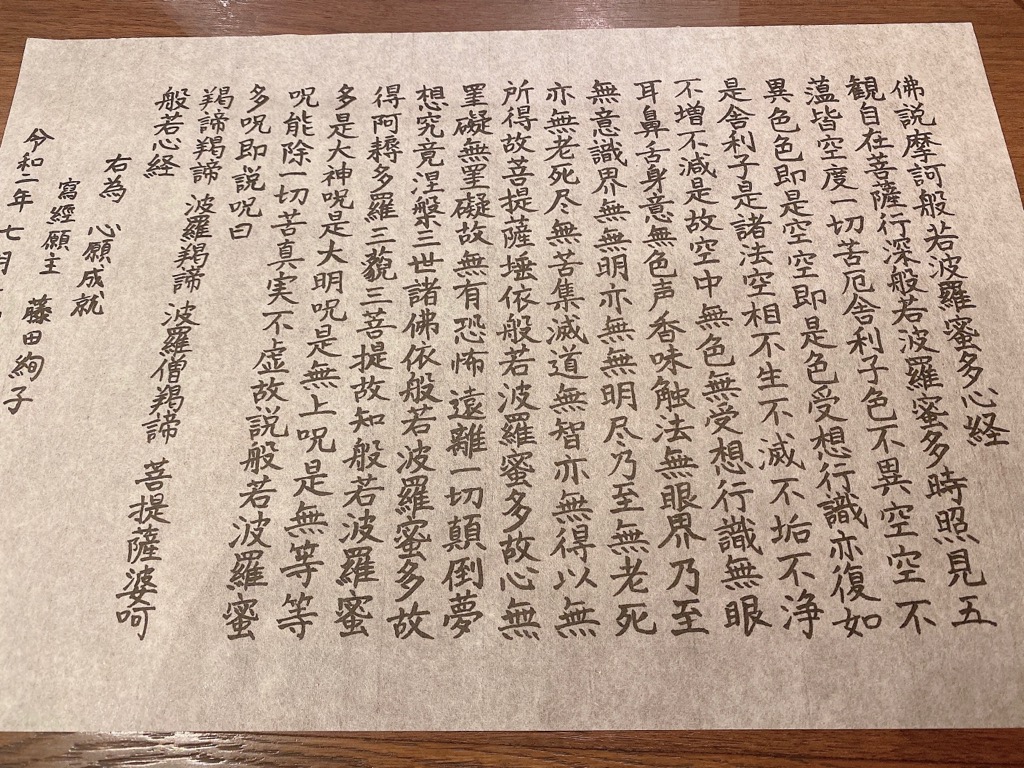 佛説摩訶般若波羅蜜多心経
観自在菩薩行深般若波羅蜜多時照見五
薀皆空度一切苦厄舎利子色不異空空不
異色色即是空空即是色受想行識亦復如
是舎利子是諸法空相不生不滅不垢不浄
不増不減是故空中無色無受想行識無眼
耳鼻舌身意無色声香味触法無眼界乃至
無意識界無無明亦無無明尽乃至無老死
亦無老死尽無苦集滅道無智亦無得以無
所得故菩提薩埵依般若波羅蜜多故心無
罣礙無罣礙故無有恐怖遠離一切顛倒夢
想究竟涅槃三世諸佛依般若波羅蜜多故
得阿耨多羅三藐三菩提故知般若波羅蜜
多是大神呪是大明呪是無上呪是無等等
呪能除一切苦真実不虚故説般若波羅蜜
多呪即説呪曰
羯諦羯諦 波羅羯諦 波羅僧羯諦 菩提薩婆呵
般若心経
右為 心願成就
寫經願主 藤田絢子
令和二年 七月